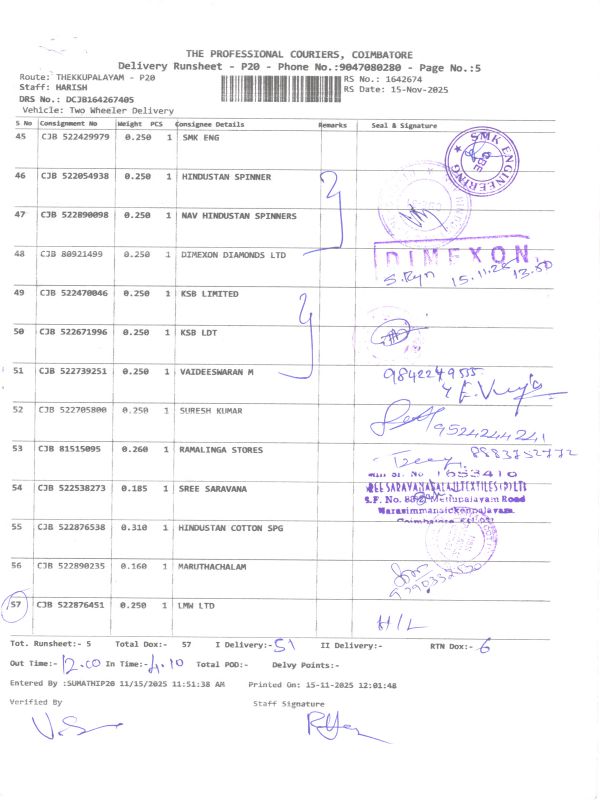 THE PROFESSIONAL COURIERS, COIMBATORE
Delivery Runsheet - P20 - Phone No.:9047080280 - Page No.:5
Route: THEKKUPALAYAM - P20 RS No.: 1642674
Staff: HARISH RS Date: 15-Nov-2025
DRS No.: DCJB164267405
Vehicle: Two Wheeler Delivery
S No Consignment No Weight PCS Consignee Details Remarks Seal & Signature
45 CJB 522429979 0.250 1 SMK ENG
SMK ENGINEERING
CBE
46 CJB 522054938 0.250 1 HINDUSTAN SPINNER
47 CJB 522890098 0.250 1 NAV HINDUSTAN SPINNERS
48 CJB 80921499 0.250 1 DIMEXON DIAMONDS LTD
DIMEXON
15.11.25 13.50
49 CJB 522470046 0.250 1 KSB LIMITED
50 CJB 522671996 0.250 1 KSB LDT
51 CJB 522739251 0.250 1 VAIDEESWARAN M
52 CJB 522705800 0.250 1 SURESH KUMAR
9524244241
53 CJB 81515095 0.260 1 RAMALINGA STORES 8883752772
1653410
54 CJB 522538273 0.185 1 SREE SARAVANA
Mettupalayam Road
Narasimmanaickenpalayam,
55 CJB 522876538 0.310 1 HINDUSTAN COTTON SPG
56 CJB 522890235 0.160 1 MARUTHACHALAM
57 CJB 522876451 0.250 1 LMW LTD
H/L
Tot. Runsheet:- 5 Total Dox:- 57 I Delivery:- 51 II Delivery:- RTN Dox:- 6
Out Time:- 12.00 In Time:- 4.10 Total POD:- Delvy Points:-
Entered By :SUMATHIP20 11/15/2025 11:51:38 AM Printed On: 15-11-2025 12:01:48
Verified By Staff Signature